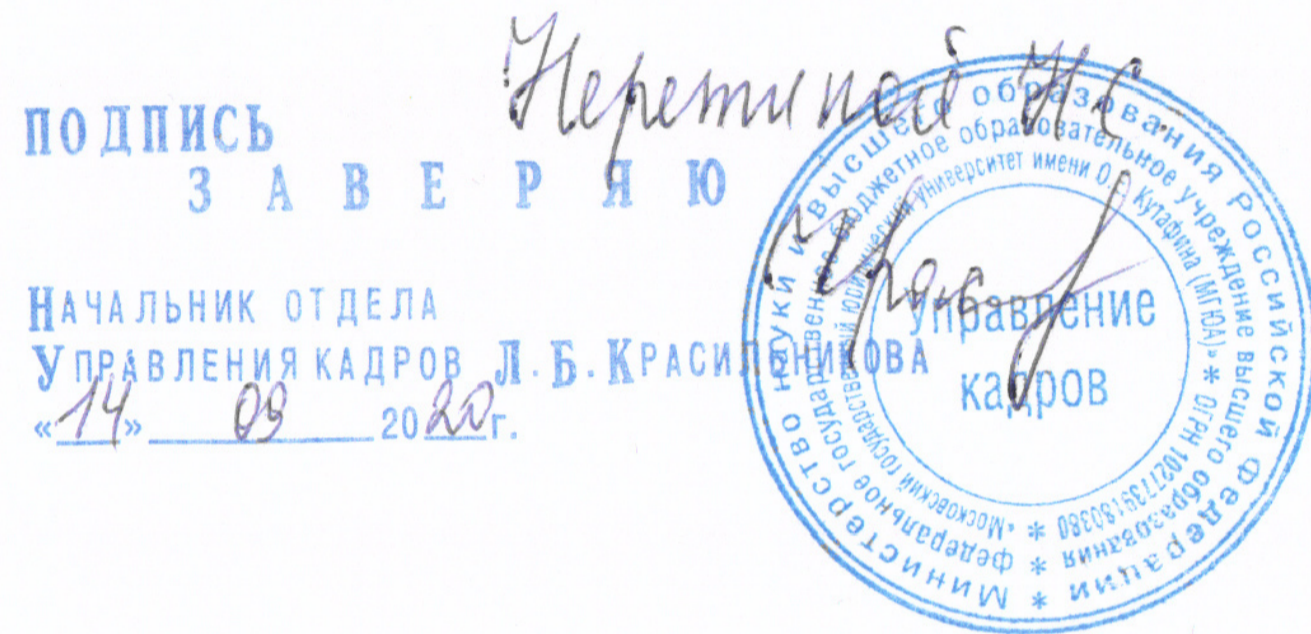 Неретиной Н.С.
ПОДПИСЬ
ЗАВЕРЯЮ
НАЧАЛЬНИК ОТДЕЛА
УПРАВЛЕНИЯ КАДРОВ Л.Б.КРАСИЛЬНИКОВА
«14» 09 2020г.
Министерство науки и высшего образования Российской Федерации *
федеральное государственное бюджетное образовательное учреждение высшего образования *
«Московский государственный юридический университет имени О.Е. Кутафина (МГЮА)» * ОГРН 1027739180380 *
Управление
кадров